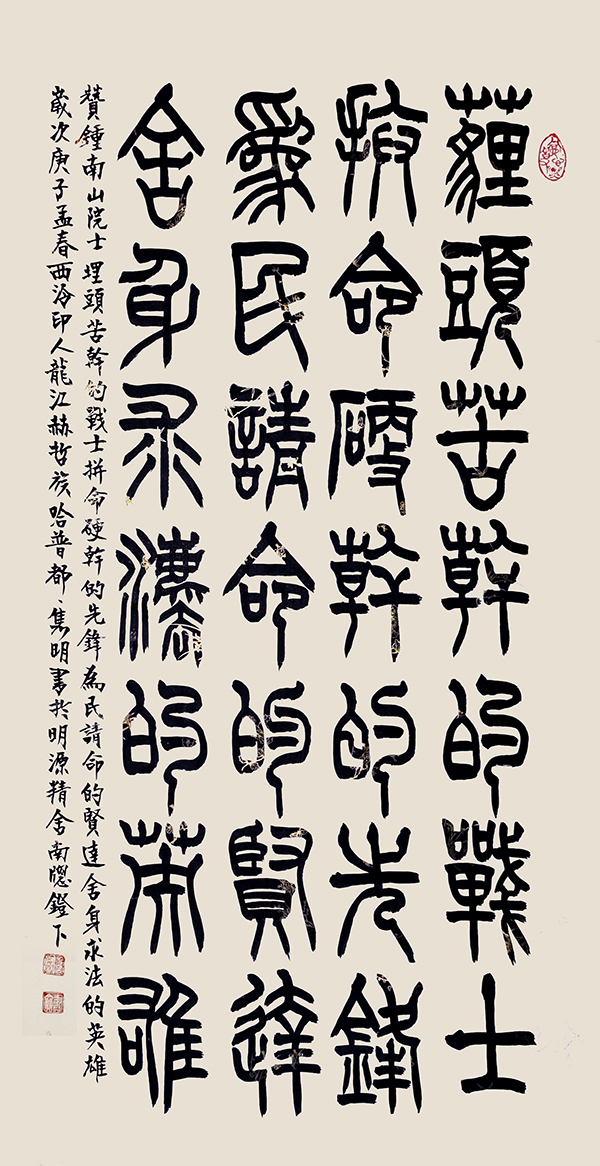 薶頭苦幹的戰士
拚命硬幹的先鋒
爲民請命的賢達
舍身求灋的英雄
贊鍾南山院士埋頭苦幹的戰士拼命硬幹的先鋒為民請命的賢達舍身求法的英雄
歲次庚子孟春西海印人龍江赫哲族哈普都、雋明書於明源精舍南牕鐙下